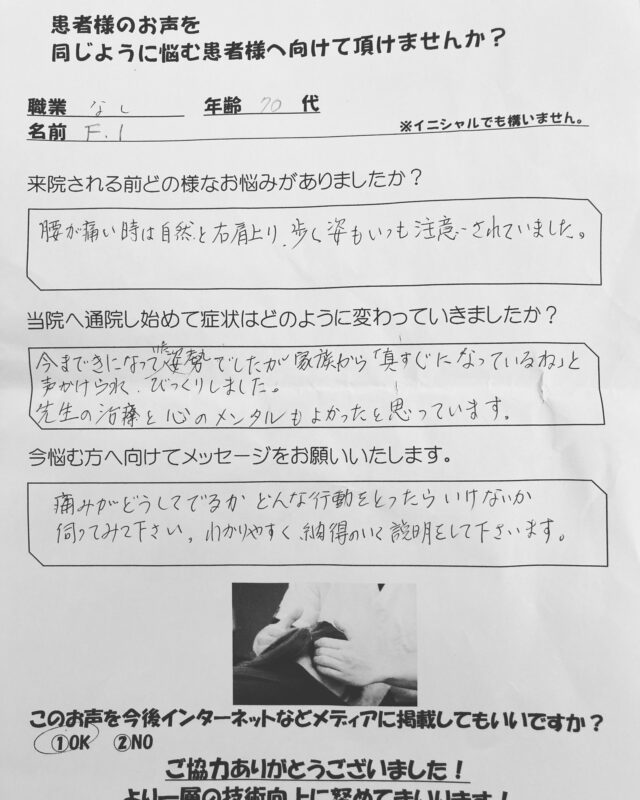 患者様のお声を
同じように悩む患者様へ向けて頂けませんか？
職業 なし 年齢 70 代
名前 F.I ※イニシャルでも構いません。
来院される前どの様なお悩みがありましたか？
腰が痛い時は自然と右肩上り、歩く姿もいつも注意されていました。
当院へ通院し始めて症状はどのように変わっていきましたか？
今まできになっていた姿勢でしたが家族から「真すぐになっているね」と
声かけられ、びっくりしました。
先生の治療と心のメンタルもよかったと思っています。
今悩む方へ向けてメッセージをお願いいたします。
痛みがどうしてでるか どんな行動をとったらいけないか
伺ってみて下さい。わかりやすく納得のいく説明をして下さいます。
このお声を今後インターネットなどメディアに掲載してもいいですか？
①OK ②NO
ご協力ありがとうございました！
より一層の技術向上に努めてまいります！